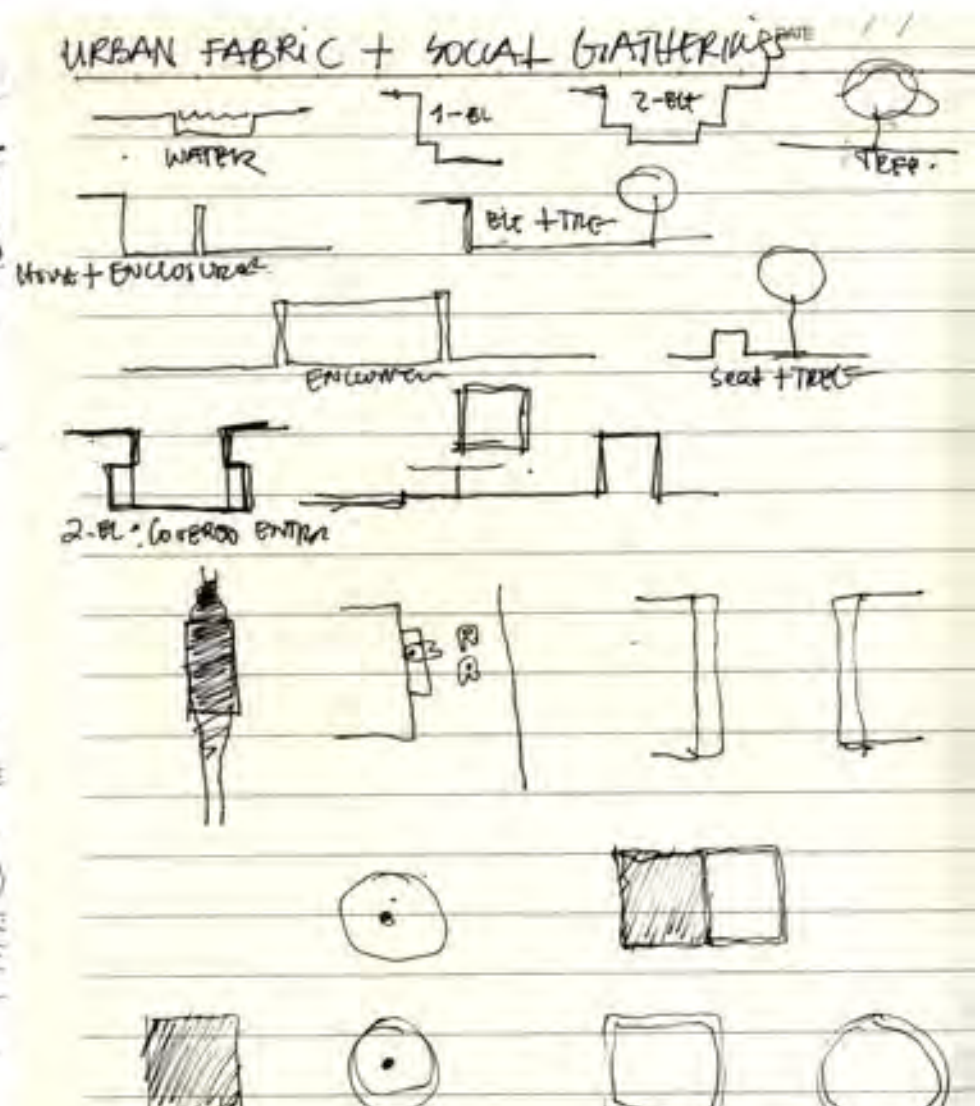 URBAN FABRIC + SOCIAL GATHERINGS
DATE / /
WATER
1-EL
2-ELE
TREE.
ELE + TRE
+ ENCLOSURE
seat + TREE
2-EL: COVERED ENTRA